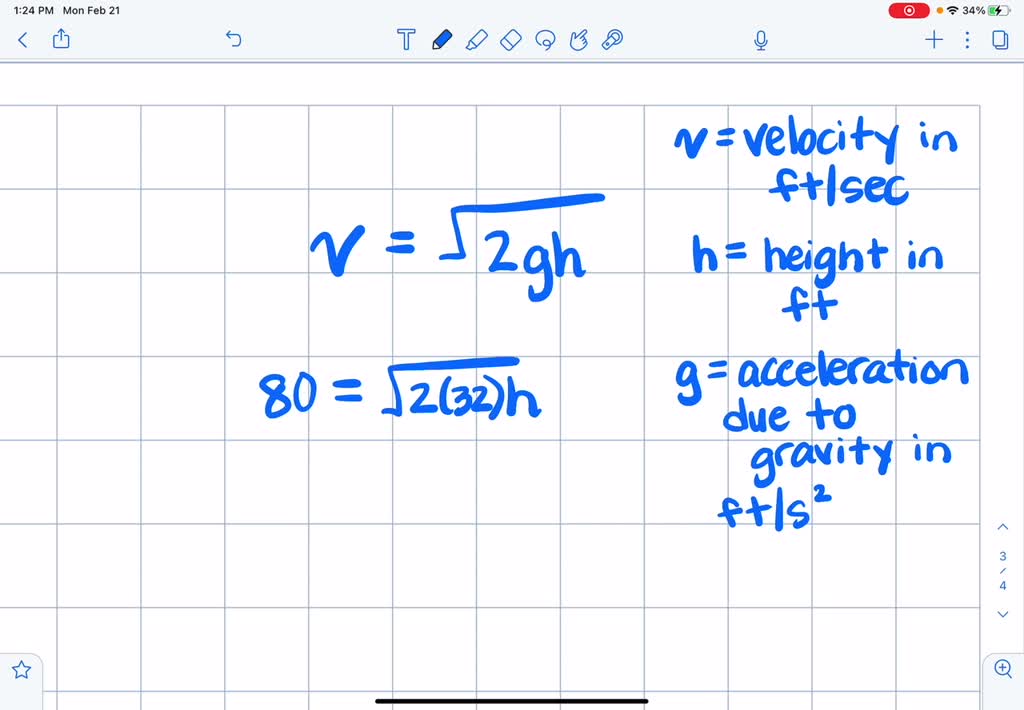 1:24 PM Mon Feb 21
34%
T
v = √2gh
80 = √2(32)h
v = velocity in
ft/sec
h = height in
ft
g = acceleration
due to
gravity in
ft/s²
3
/
4